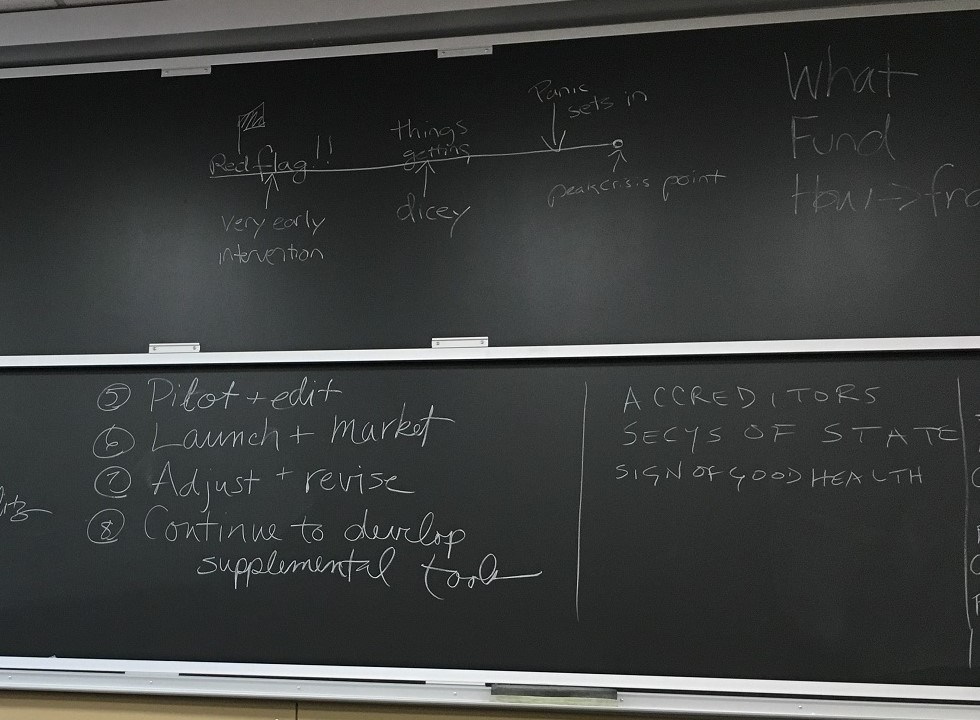 Panic
sets in
things
getting
Red flag!!
very early
intervention
dicey
peak crisis point
What
Fund
How->
⑤ Pilot + edit
⑥ Launch + market
⑦ Adjust + revise
⑧ Continue to develop
supplemental tools
ACCREDITORS
SECYS OF STATE
SIGN OF GOOD HEALTH